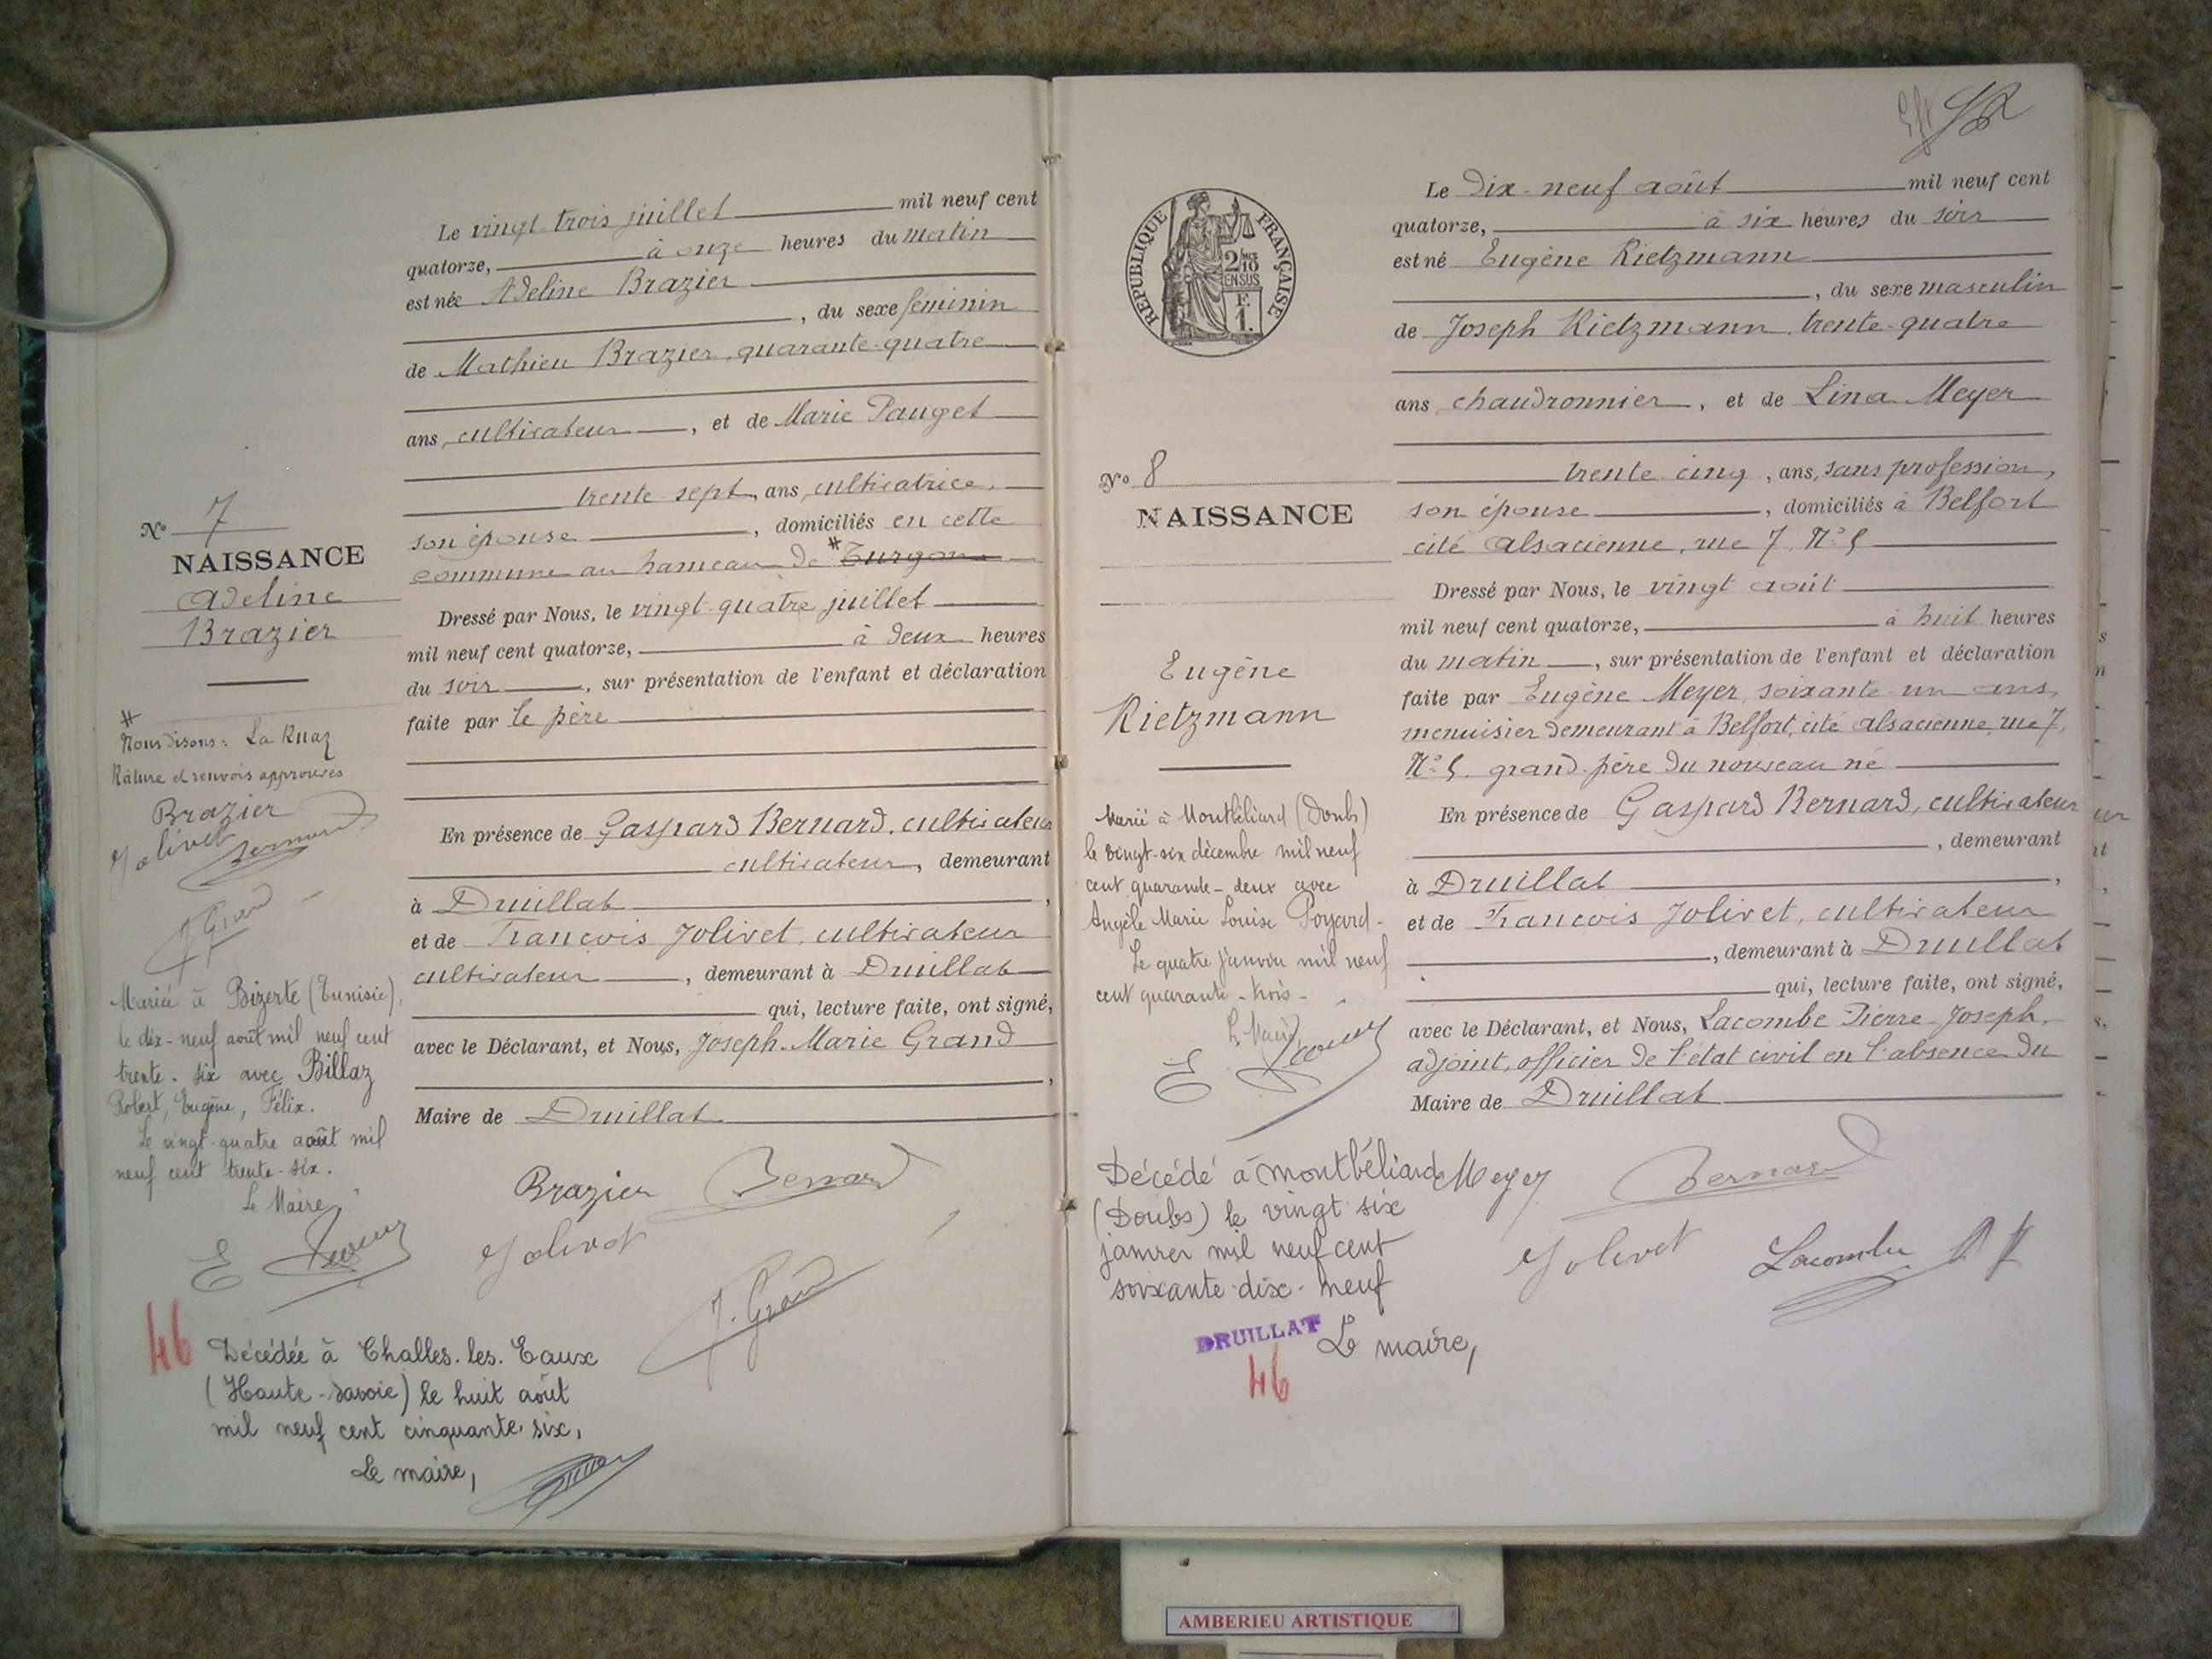 Le vingt-trois juillet mil neuf cent
quatorze, à onze heures du matin
est née Adeline Brazier
, du sexe féminin
de Mathieu Brazier, quarante-quatre
ans, cultivateur, et de Marie Pauget
trente-sept, ans, cultivatrice,
son épouse, domiciliés en cette
commune au hameau de * Turgon
Dressé par Nous, le vingt-quatre juillet
mil neuf cent quatorze, à deux heures
du soir, sur présentation de l'enfant et déclaration
faite par le père
En présence de Gaspard Bernard, cultivateur
cultivateur, demeurant
à Druillat,
et de Francois Jolivet, cultivateur
cultivateur, demeurant à Druillat
qui, lecture faite, ont signé,
avec le Déclarant, et Nous, Joseph-Marie Grand
,
Maire de Druillat
Brazier Bernard
Jolivet
J. Grand
No 7
NAISSANCE
Adeline
Brazier
*
Nous disons: La Ruaz
Râture et renvois approuvés
Brazier
Jolivet Bernard
J Grand
Mariée à Bizerte (Tunisie),
le dix-neuf août mil neuf cent
trente-six avec Billaz
Robert, Eugène, Félix.
Le vingt-quatre août mil
neuf cent trente-six.
Le Maire
46
Décédée à Challes-les-Eaux
(Haute-Savoie) le huit août
mil neuf cent cinquante-six,
Le maire,
RÉPUBLIQUE FRANÇAISE
2/10
EN SUS
F.
1.
Le Dix-neuf août mil neuf cent
quatorze, à six heures du soir
est né Eugène Rietzmann
, du sexe masculin
de Joseph Rietzmann, trente-quatre
ans, chaudronnier, et de Lina Meyer
trente-cinq, ans, sans profession,
son épouse, domiciliés à Belfort
cité Alsacienne, rue 7, No 5
Dressé par Nous, le vingt août
mil neuf cent quatorze, à huit heures
du matin, sur présentation de l'enfant et déclaration
faite par Eugène Meyer, soixante-un ans,
menuisier demeurant à Belfort, cité Alsacienne, rue 7,
No 5, grand-père du nouveau né
En présence de Gaspard Bernard, cultivateur
, demeurant
à Druillat,
et de Francois Jolivet, cultivateur
, demeurant à Druillat
qui, lecture faite, ont signé,
avec le Déclarant, et Nous, Lacombe Pierre-Joseph,
adjoint, officier de l'état civil en l'absence du
Maire de Druillat
Meyer Bernard
Jolivet Lacombe
No 8
NAISSANCE
Eugène
Rietzmann
Marié à Montbéliard (Doubs)
le vingt-six décembre mil neuf
cent quarante-deux avec
Angèle Marie Louise Poyard-
Le quatre janvier mil neuf
cent quarante-trois-
Le Maire
Décédé à Montbéliard
(Doubs) le vingt six
janvier mil neuf cent
soixante-dix-neuf
DRUILLAT Le maire,
46
AMBERIEU ARTISTIQUE